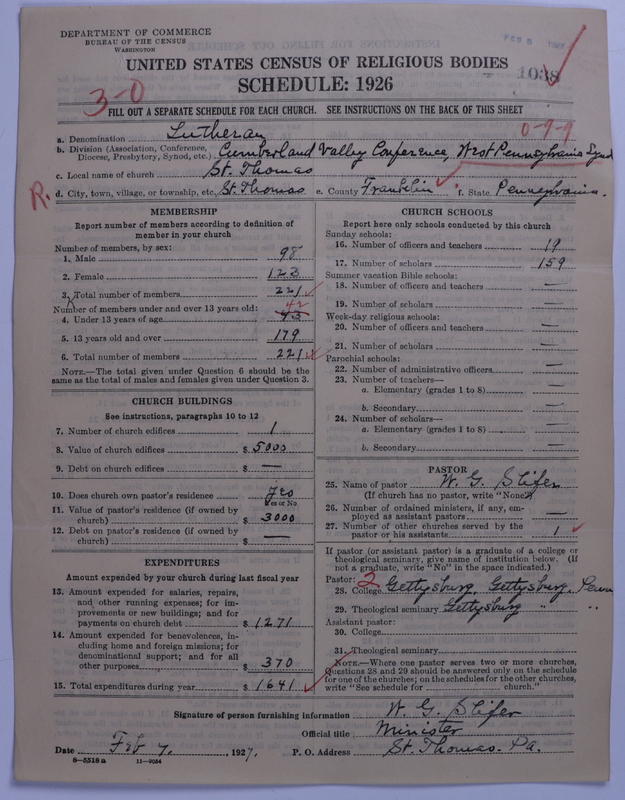 DEPARTMENT OF COMMERCE
BUREAU OF THE CENSUS
WASHINGTON
FEB 8 1927
UNITED STATES CENSUS OF RELIGIOUS BODIES
SCHEDULE: 1926
1038
3-0
FILL OUT A SEPARATE SCHEDULE FOR EACH CHURCH. SEE INSTRUCTIONS ON THE BACK OF THIS SHEET
0-9-9
a. Denomination Lutheran
b. Division (Association, Conference, Diocese, Presbytery, Synod, etc.) Cumberland Valley Conference, West Pennsylvania Synod
c. Local name of church St. Thomas
R.
d. City, town, village, or township, etc. St. Thomas e. County Franklin f. State Pennsylvania.
MEMBERSHIP
Report number of members according to definition of
member in your church
Number of members, by sex:
1. Male 98
2. Female 123
3. Total number of members 221
Number of members under and over 13 years old:
42
4. Under 13 years of age 43
5. 13 years old and over 179
6. Total number of members 221
NOTE.—The total given under Question 6 should be the
same as the total of males and females given under Question 3.
CHURCH BUILDINGS
See instructions, paragraphs 10 to 12
7. Number of church edifices 1
8. Value of church edifices $ 5000
9. Debt on church edifices $ —
10. Does church own pastor's residence Yes
Yes or No
11. Value of pastor's residence (if owned by
church) $ 3000
12. Debt on pastor's residence (if owned by
church) $ —
EXPENDITURES
Amount expended by your church during last fiscal year
13. Amount expended for salaries, repairs,
and other running expenses; for im-
provements or new buildings; and for
payments on church debt $ 1271
14. Amount expended for benevolences, in-
cluding home and foreign missions; for
denominational support; and for all
other purposes $ 370
15. Total expenditures during year $ 1641
CHURCH SCHOOLS
Report here only schools conducted by this church
Sunday schools:
16. Number of officers and teachers 19
17. Number of scholars 159
Summer vacation Bible schools:
18. Number of officers and teachers —
19. Number of scholars —
Week-day religious schools:
20. Number of officers and teachers —
21. Number of scholars —
Parochial schools:
22. Number of administrative officers —
23. Number of teachers—
a. Elementary (grades 1 to 8) —
b. Secondary —
24. Number of scholars—
a. Elementary (grades 1 to 8) —
b. Secondary —
PASTOR
25. Name of pastor W. G. Slifer
(If church has no pastor, write "None")
26. Number of ordained ministers, if any, em-
ployed as assistant pastors —
27. Number of other churches served by the
pastor or his assistants 1
If pastor (or assistant pastor) is a graduate of a college or
theological seminary, give name of institution below. (If
not a graduate, write "No" in the space indicated.)
Pastor: 2
28. College Gettysburg, Gettysburg, Penn
29. Theological seminary Gettysburg " "
Assistant pastor:
30. College
31. Theological seminary
NOTE.—Where one pastor serves two or more churches,
Questions 28 and 29 should be answered only on the schedule
for one of the churches; on the schedules for the other churches,
write "See schedule for church."
Signature of person furnishing information W. G. Slifer
Official title Minister
Date Feb 7, 1927. P. O. Address St. Thomas. Pa.
8-5518a 11-9054